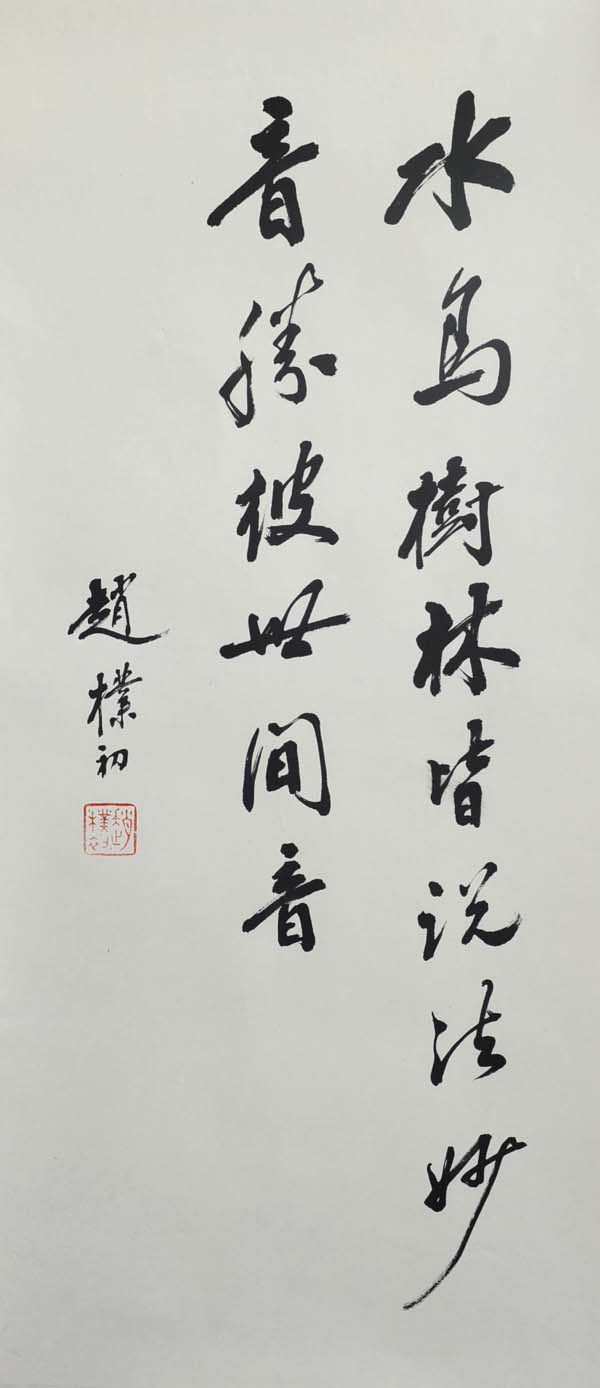 水鳥樹林皆说法妙
音勝彼世间音
趙樸初
趙樸初